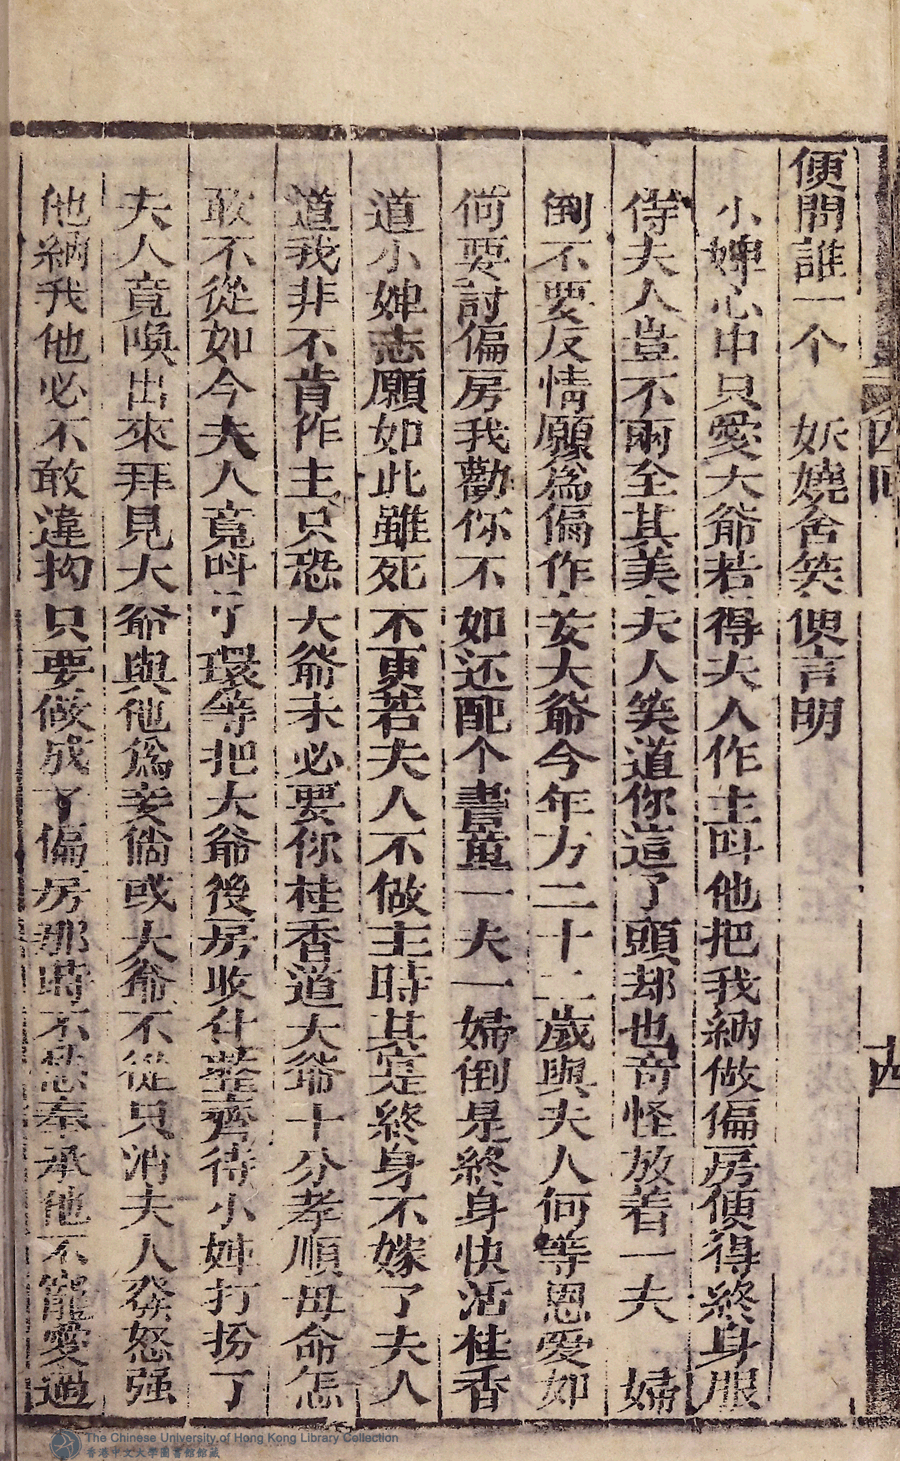 便問誰一个　妖嬈含笑便言明
小婢心中只愛大爺若得夫人作主呌他把我納做偏房便得終身服
侍夫人豈不兩全其美夫人笑道你這丫頭却也奇怪放着一夫　婦
倒不要反情願爲偏作妾大爺今年方二十二歲與夫人何等恩愛如
何要討偏房我勸你不如还配个書童一夫一婦倒是終身快活桂香
道小婢志願如此雖死不更若夫人不做主時其寔終身不嫁了夫人
道我非不肯作主只恐大爺未必要你桂香道大爺十分孝順母命怎
敢不從如今夫人竟呌丫環等把大爺後房收什整齊待小婢打扮了
夫人竟喚出來拜見大爺與他爲妾倘或大爺不從只消夫人發怒强
他納我他必不敢違拘只要做成了偏房那時不愁奉承他不寵愛過
四囬
十四
The Chinese University of Hong Kong Library Collection
香港中文大學圖書館館藏